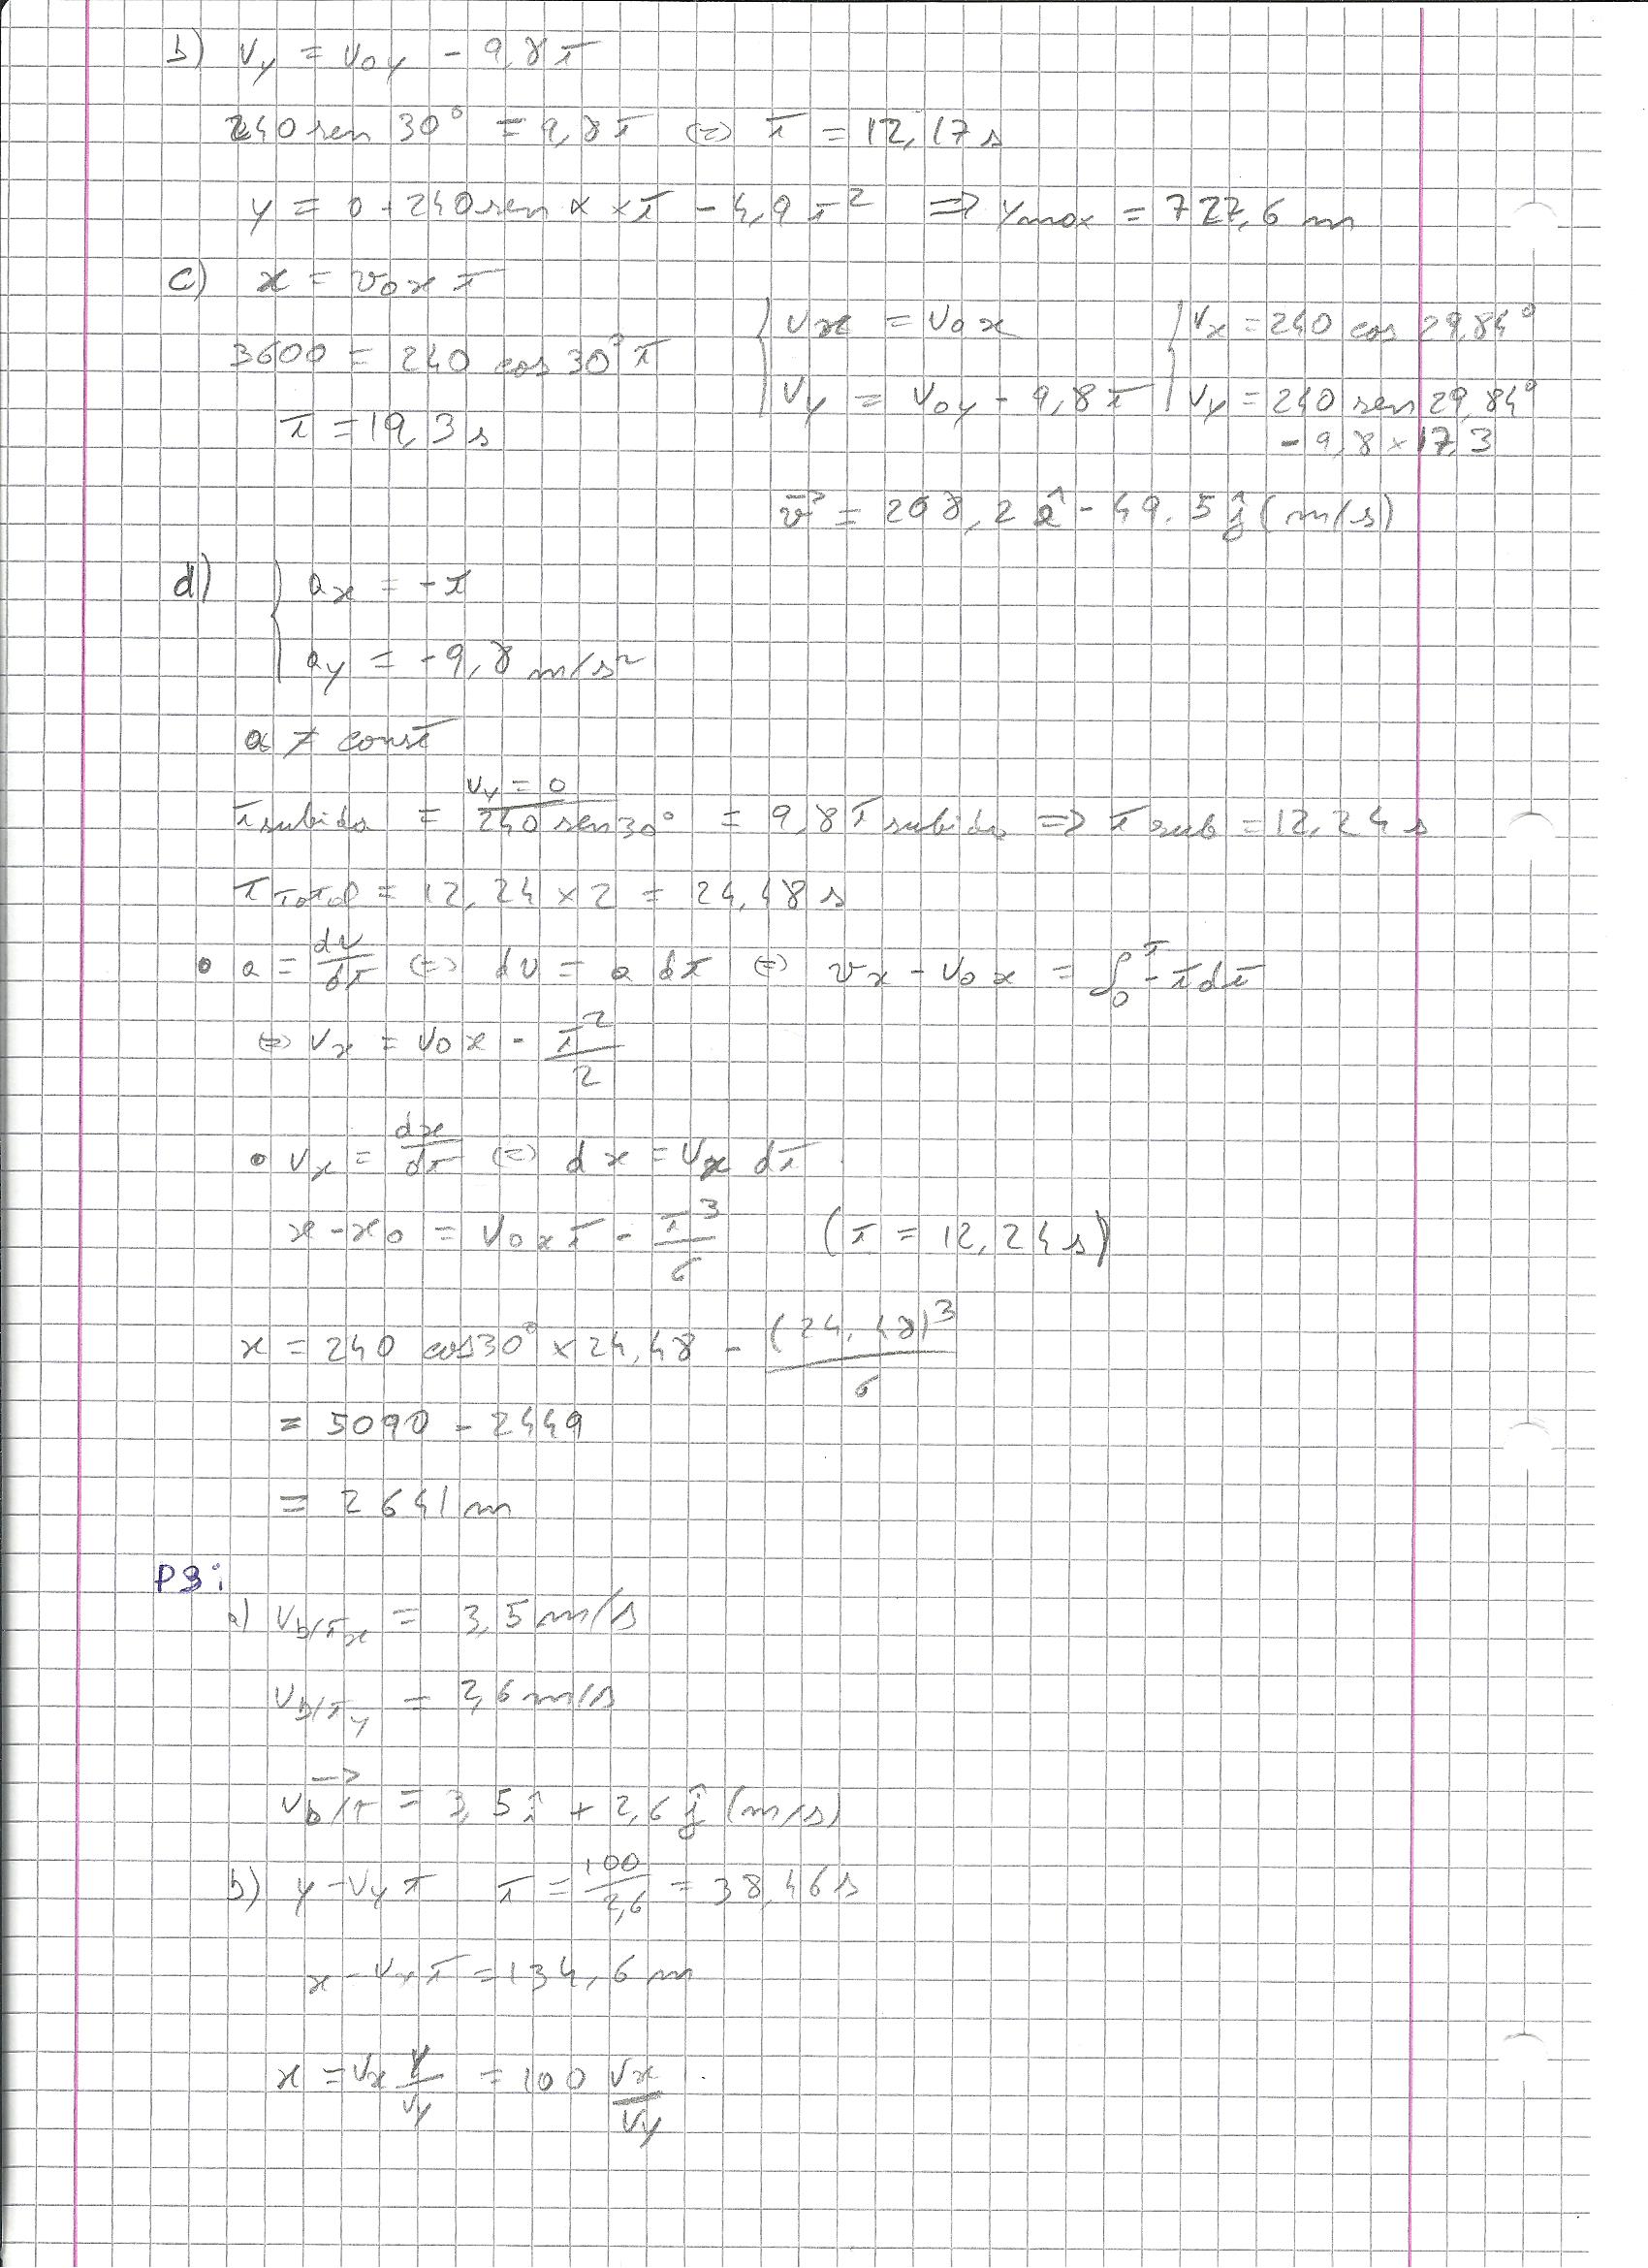 b) Vy = Voy - 9,8t
240 sen 30° = 9,8t (=) t = 12,17s
y = 0 + 240 sen α × t - 4,9t² => ymax = 727,6 m
c) x = vox t
3600 = 240 cos 30° t
t = 19,3s
Vx = Vox
Vy = Voy - 9,8t
Vx = 240 cos 29,84°
Vy = 240 sen 29,84°
- 9,8 × 17,3
v⃗ = 208,2 î - 49,5 ĵ (m/s)
d) ax = -t
ay = -9,8 m/s²
a ≠ const
Vy = 0
t subida = 240 sen 30° = 9,8 t subida => t sub = 12,24 s
t Total = 12,24 × 2 = 24,48 s
• a = dv/dt (=) dv = a dt (=) vx - vox = ∫₀ᵗ -t dt
(=) vx = vox - t²/2
• vx = dx/dt (=) dx = vx dt
x - x0 = vox t - t³/6 (t = 12,24 s)
x = 240 cos30° × 24,48 - (24,48)³/6
= 5090 - 2449
= 2641 m
P3:
a) Vb/Tx = 3,5 m/s
Vb/Ty = 2,6 m/s
V⃗b/T = 3,5 î + 2,6 ĵ (m/s)
b) y = Vy t t = 100/2,6 = 38,46 s
x = Vx t = 134,6 m
x = Vx y/Vy = 100 Vx/Vy